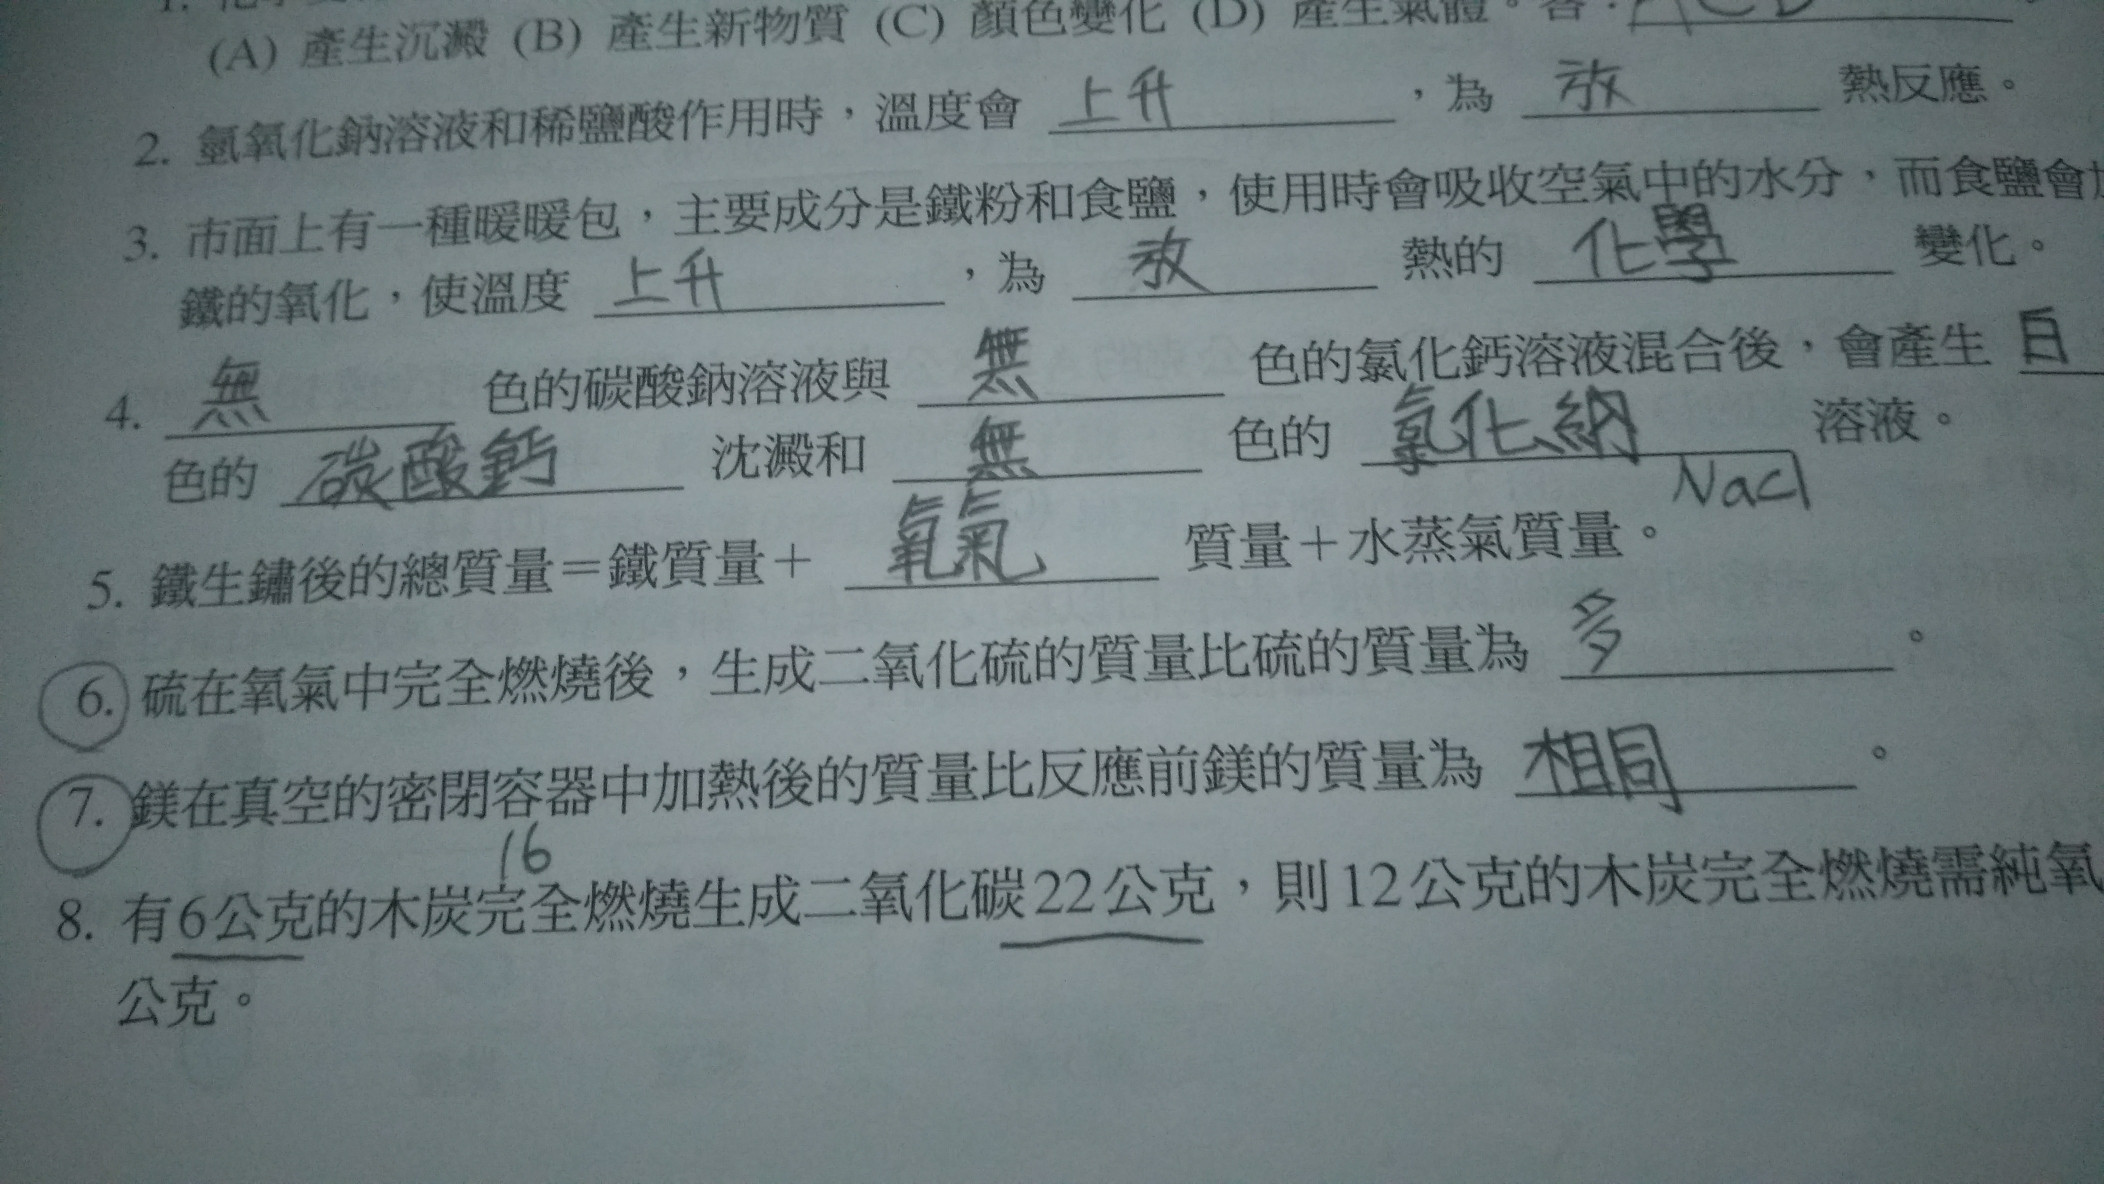 (A) 產生沉澱 (B) 產生新物質 (C) 顏色變化 (D) 產生氣體。答：ACD。
2. 氫氧化鈉溶液和稀鹽酸作用時，溫度會 上升 ，為 放 熱反應。
3. 市面上有一種暖暖包，主要成分是鐵粉和食鹽，使用時會吸收空氣中的水分，而食鹽會
鐵的氧化，使溫度 上升 ，為 放 熱的 化學 變化。
4. 無 色的碳酸鈉溶液與 無 色的氯化鈣溶液混合後，會產生 白
色的 碳酸鈣 沈澱和 無 色的 氯化納 溶液。
NaCl
5. 鐵生鏽後的總質量＝鐵質量＋ 氧氣 質量＋水蒸氣質量。
6. 硫在氧氣中完全燃燒後，生成二氧化硫的質量比硫的質量為 多 。
7. 鎂在真空的密閉容器中加熱後的質量比反應前鎂的質量為 相同 。
16
8. 有6公克的木炭完全燃燒生成二氧化碳22公克，則12公克的木炭完全燃燒需純氧
公克。